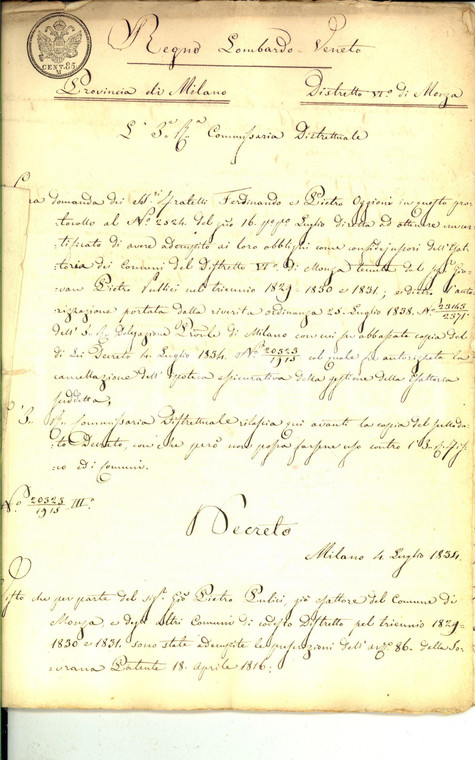 CENT. 85.
Regno Lombardo-Veneto
Provincia di Milano Distretto VI.º di Monza
L'I. R. Commissaria Distrettuale
domanda dei fratelli Ferdinando e Pietro Oggioni in questo pro-
tocollo al N.º 2524 del gio 16. Luglio diretta ad ottenere un cer-
tificato di avere adempito ai loro obblighi come confidejussori dell'Esat-
toria dei Comuni del Distretto VI.º di Monza tenuta dal Sigr Gio-
van Pietro Pulici nel triennio 1829 - 1830 e 1831; e dietro l'auto-
rizzazione portata dalla riverita ordinanza 23. Luglio 1838. N.º 23145/2371
dell'I. R. Delegazione Prov.le di Milano con cui fu abbassata copia del
di Lei Decreto 4. Luglio 1834. N.º 20323/1915 col quale fu autorizzata la
cancellazione dell'ipoteca assicurativa della gestione della Esattoria
suddetta;
Commissaria Distrettuale rilascia qui avanti la copia del succita-
to Decreto, con che però non possa farsene uso contro l'I. R. Fis-
co ed i Comuni.
N.º 20323/1915 III.º
Decreto
Milano 4. Luglio 1834.
Visto che per parte del Sigr Gio Pietro Pulici, già esattore del Comune di
Monza, e degli altri Comuni di codesto Distretto pel triennio 1829-
1830 e 1831. sono state adempite le prescrizioni dell'art.º 86. della So-
vrana Patente 18. Aprile 1816;